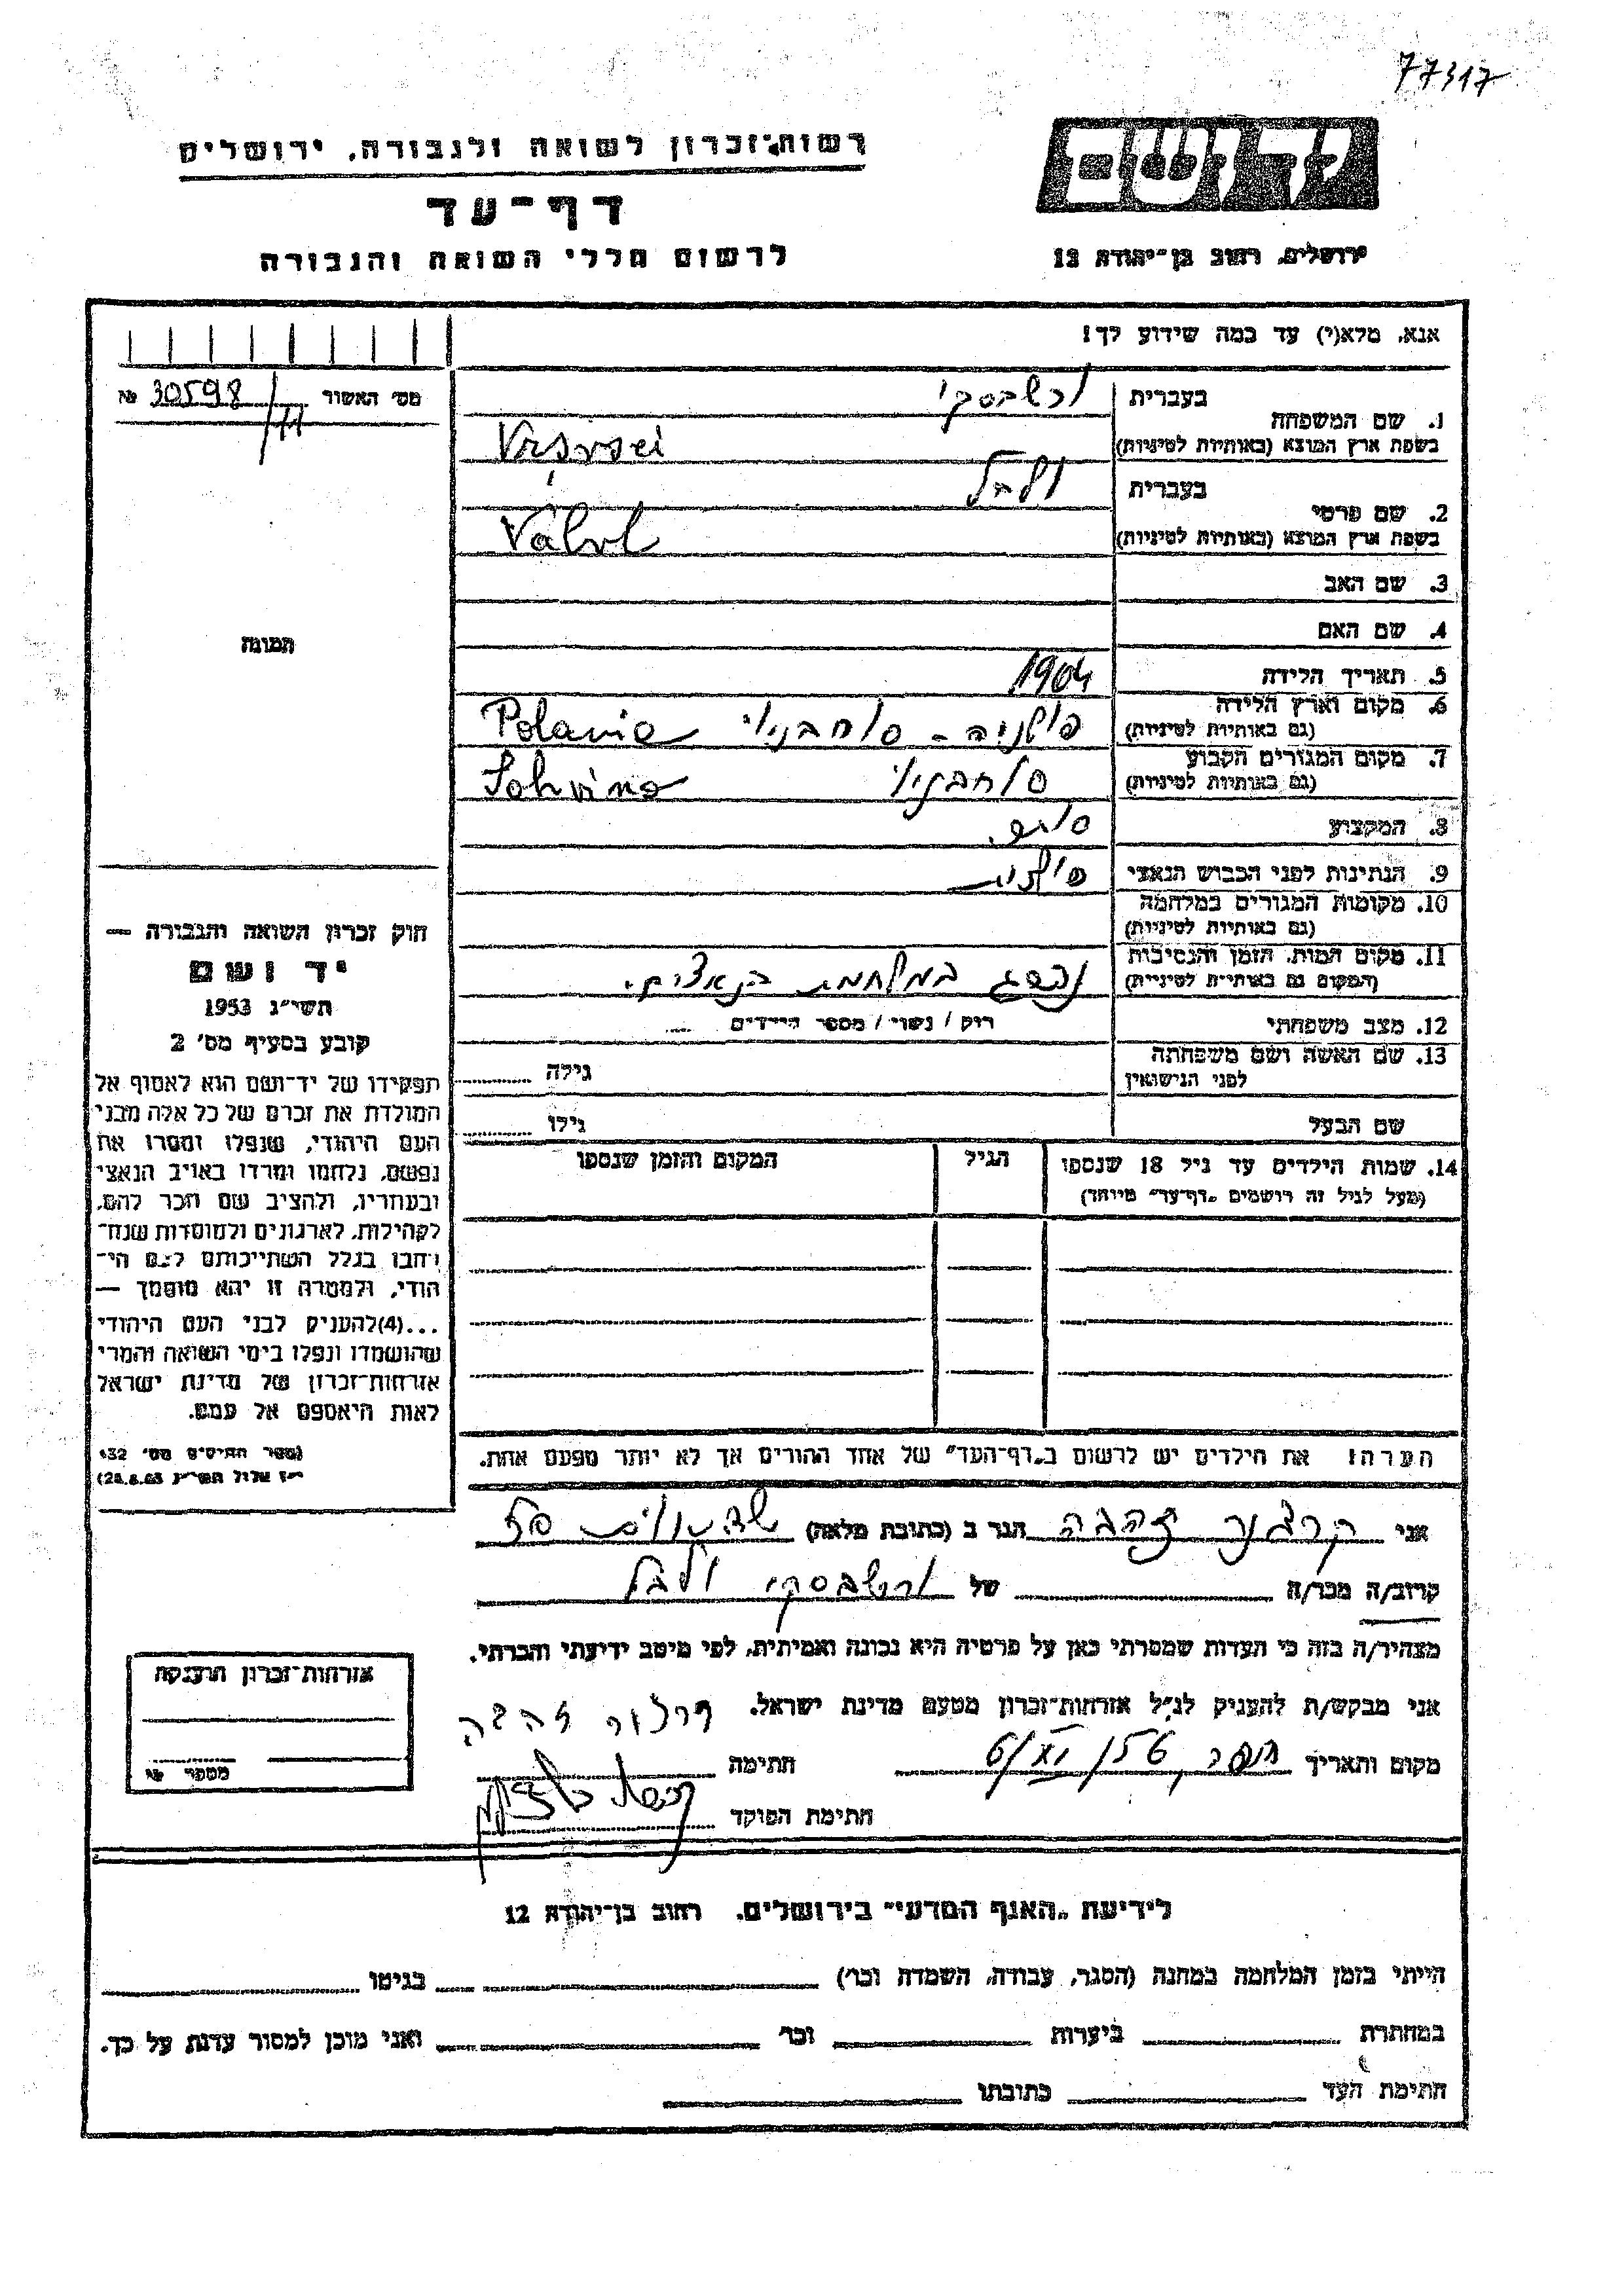 77317
רשות־זכרון לשואה ולגבורה, ירושלים
דף־עד
לרשום חללי השואה והגבורה
יד ושם
ירושלים, רחוב בן־יהודה 12
אנא, מלא(י) עד כמה שידוע לך!
מס׳ האשור 30598 №
1. שם המשפחה
בעברית ורשבסקי
בשפת ארץ המוצא (באותיות לטיניות)
2. שם פרטי
בעברית ולבל
בשפת ארץ המוצא (באותיות לטיניות)
3. שם האב
4. שם האם
5. תאריך הלידה 1904
6. מקום וארץ הלידה
(גם באותיות לטיניות) Polania
7. מקום המגורים הקבוע
(גם באותיות לטיניות)
8. המקצוע
9. הנתינות לפני הכבוש הנאצי
10. מקומות המגורים במלחמה
(גם באותיות לטיניות)
11. מקום המות, הזמן והנסיבות
(המקום גם באותיות לטיניות) במלחמת הנאצים.
12. מצב משפחתי רווק / נשוי / מספר הילדים
13. שם האשה ושם משפחתה
לפני הנישואין גילה
שם הבעל גילו
14. שמות הילדים עד גיל 18 שנספו הגיל המקום והזמן שנספו
(מעל לגיל זה רושמים „דף־עד״ מיוחד)
הערה: את הילדים יש לרשום ב„דף־העד״ של אחד ההורים אך לא יותר מפעם אחת.
תמונה
חוק זכרון השואה והגבורה —
יד ושם
תשי״ג 1953
קובע בסעיף מס׳ 2
תפקידו של יד־ושם הוא לאסוף אל
המולדת את זכרם של כל אלה מבני
העם היהודי, שנפלו ומסרו את
נפשם, נלחמו ומרדו באויב הנאצי
ובעוזריו, ולהציב שם וזכר להם,
לקהילות, לארגונים ולמוסדות שנח־
רבו בגלל השתייכותם לעם הי־
הודי, ולמטרה זו יהא מוסמך —
...(4)להעניק לבני העם היהודי
שהושמדו ונפלו בימי השואה והמרי
אזרחות־זכרון של מדינת ישראל
לאות היאספם אל עמם.
(ספר החוקים מס׳ 132
אני זהבה הגר ב (כתובת מלאה)
קרוב/ה מכר/ה של ורשבסקי ולבל
מצהיר/ה בזה כי העדות שמסרתי כאן על פרטיה היא נכונה ואמיתית, לפי מיטב ידיעתי והכרתי.
אני מבקש/ת להעניק לנ״ל אזרחות־זכרון מטעם מדינת ישראל.
מקום ותאריך חתימה
חתימת הפוקד
אזרחות־זכרון הוענקה
מספר №
לידיעת „האגף המדעי״ בירושלים, רחוב בן־יהודה 12
הייתי בזמן המלחמה במחנה (הסגר, עבודה, השמדה וכו׳) בגיטו
במחתרת ביערות וכו׳ ואני מוכן למסור עדות על כך.
חתימת העד כתובתו